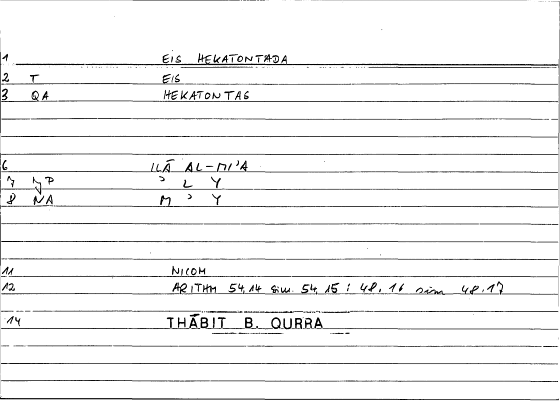 1 EIS HEKATONTADA
2 T EIS
3 QA HEKATONTAS
6 ILĀ AL-MI'A
7 NP ' L Y
8 NA M ' Y
11 NICOM
12 ARITHM 54,14 sim 54,15 : 48,16 sim 48,17
14 THĀBIT B. QURRA